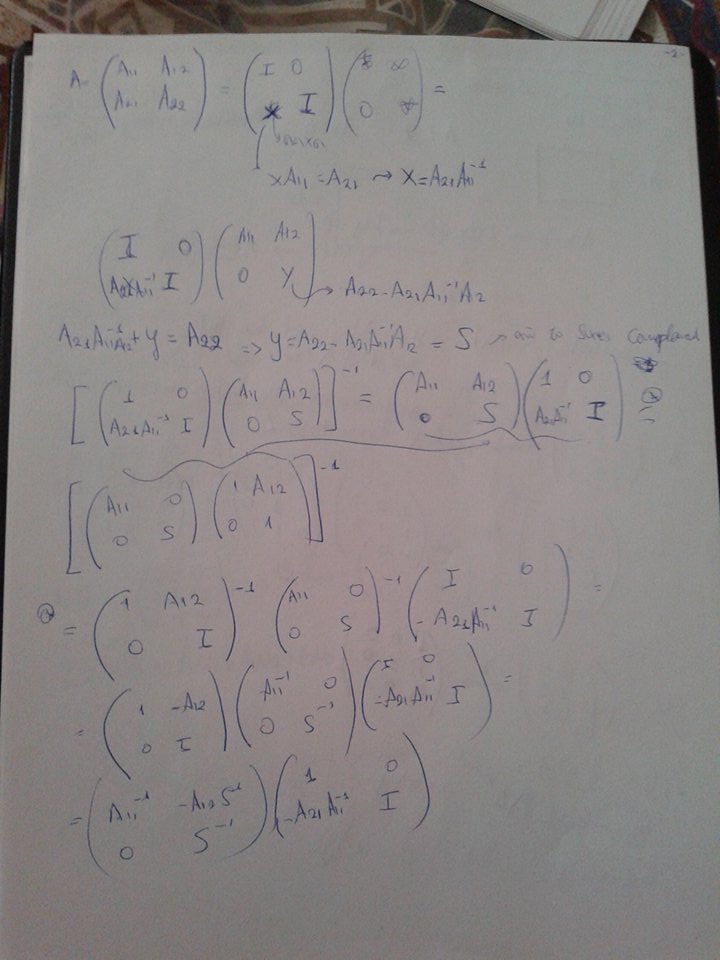 -2-
A = ( A11 A12 ; A21 A22 ) = ( I 0 ; X I ) ( * * ; 0 * ) =
XA11 = A21 → X = A21A11^-1
( I 0 ; A21A11^-1 I ) ( A11 A12 ; 0 Y ) → A22 - A21A11^-1A12
A21A11^-1A12 + Y = A22 => Y = A22 - A21A11^-1A12 = S → από το
[ ( 1 0 ; A21A11^-1 I ) ( A11 A12 ; 0 S ) ]^-1 = ( A11 A12 ; 0 S ) ( 1 0 ; A21A11^-1 I ) =
[ ( A11 0 ; 0 S ) ( 1 A12 ; 0 1 ) ]^-1
= ( 1 A12 ; 0 I )^-1 ( A11 0 ; 0 S )^-1 ( I 0 ; -A21A11^-1 I ) =
= ( 1 -A12 ; 0 I ) ( A11^-1 0 ; 0 S^-1 ) ( I 0 ; -A21A11^-1 I ) =
= ( A11^-1 -A12S^-1 ; 0 S^-1 ) ( 1 0 ; -A21A11^-1 I )